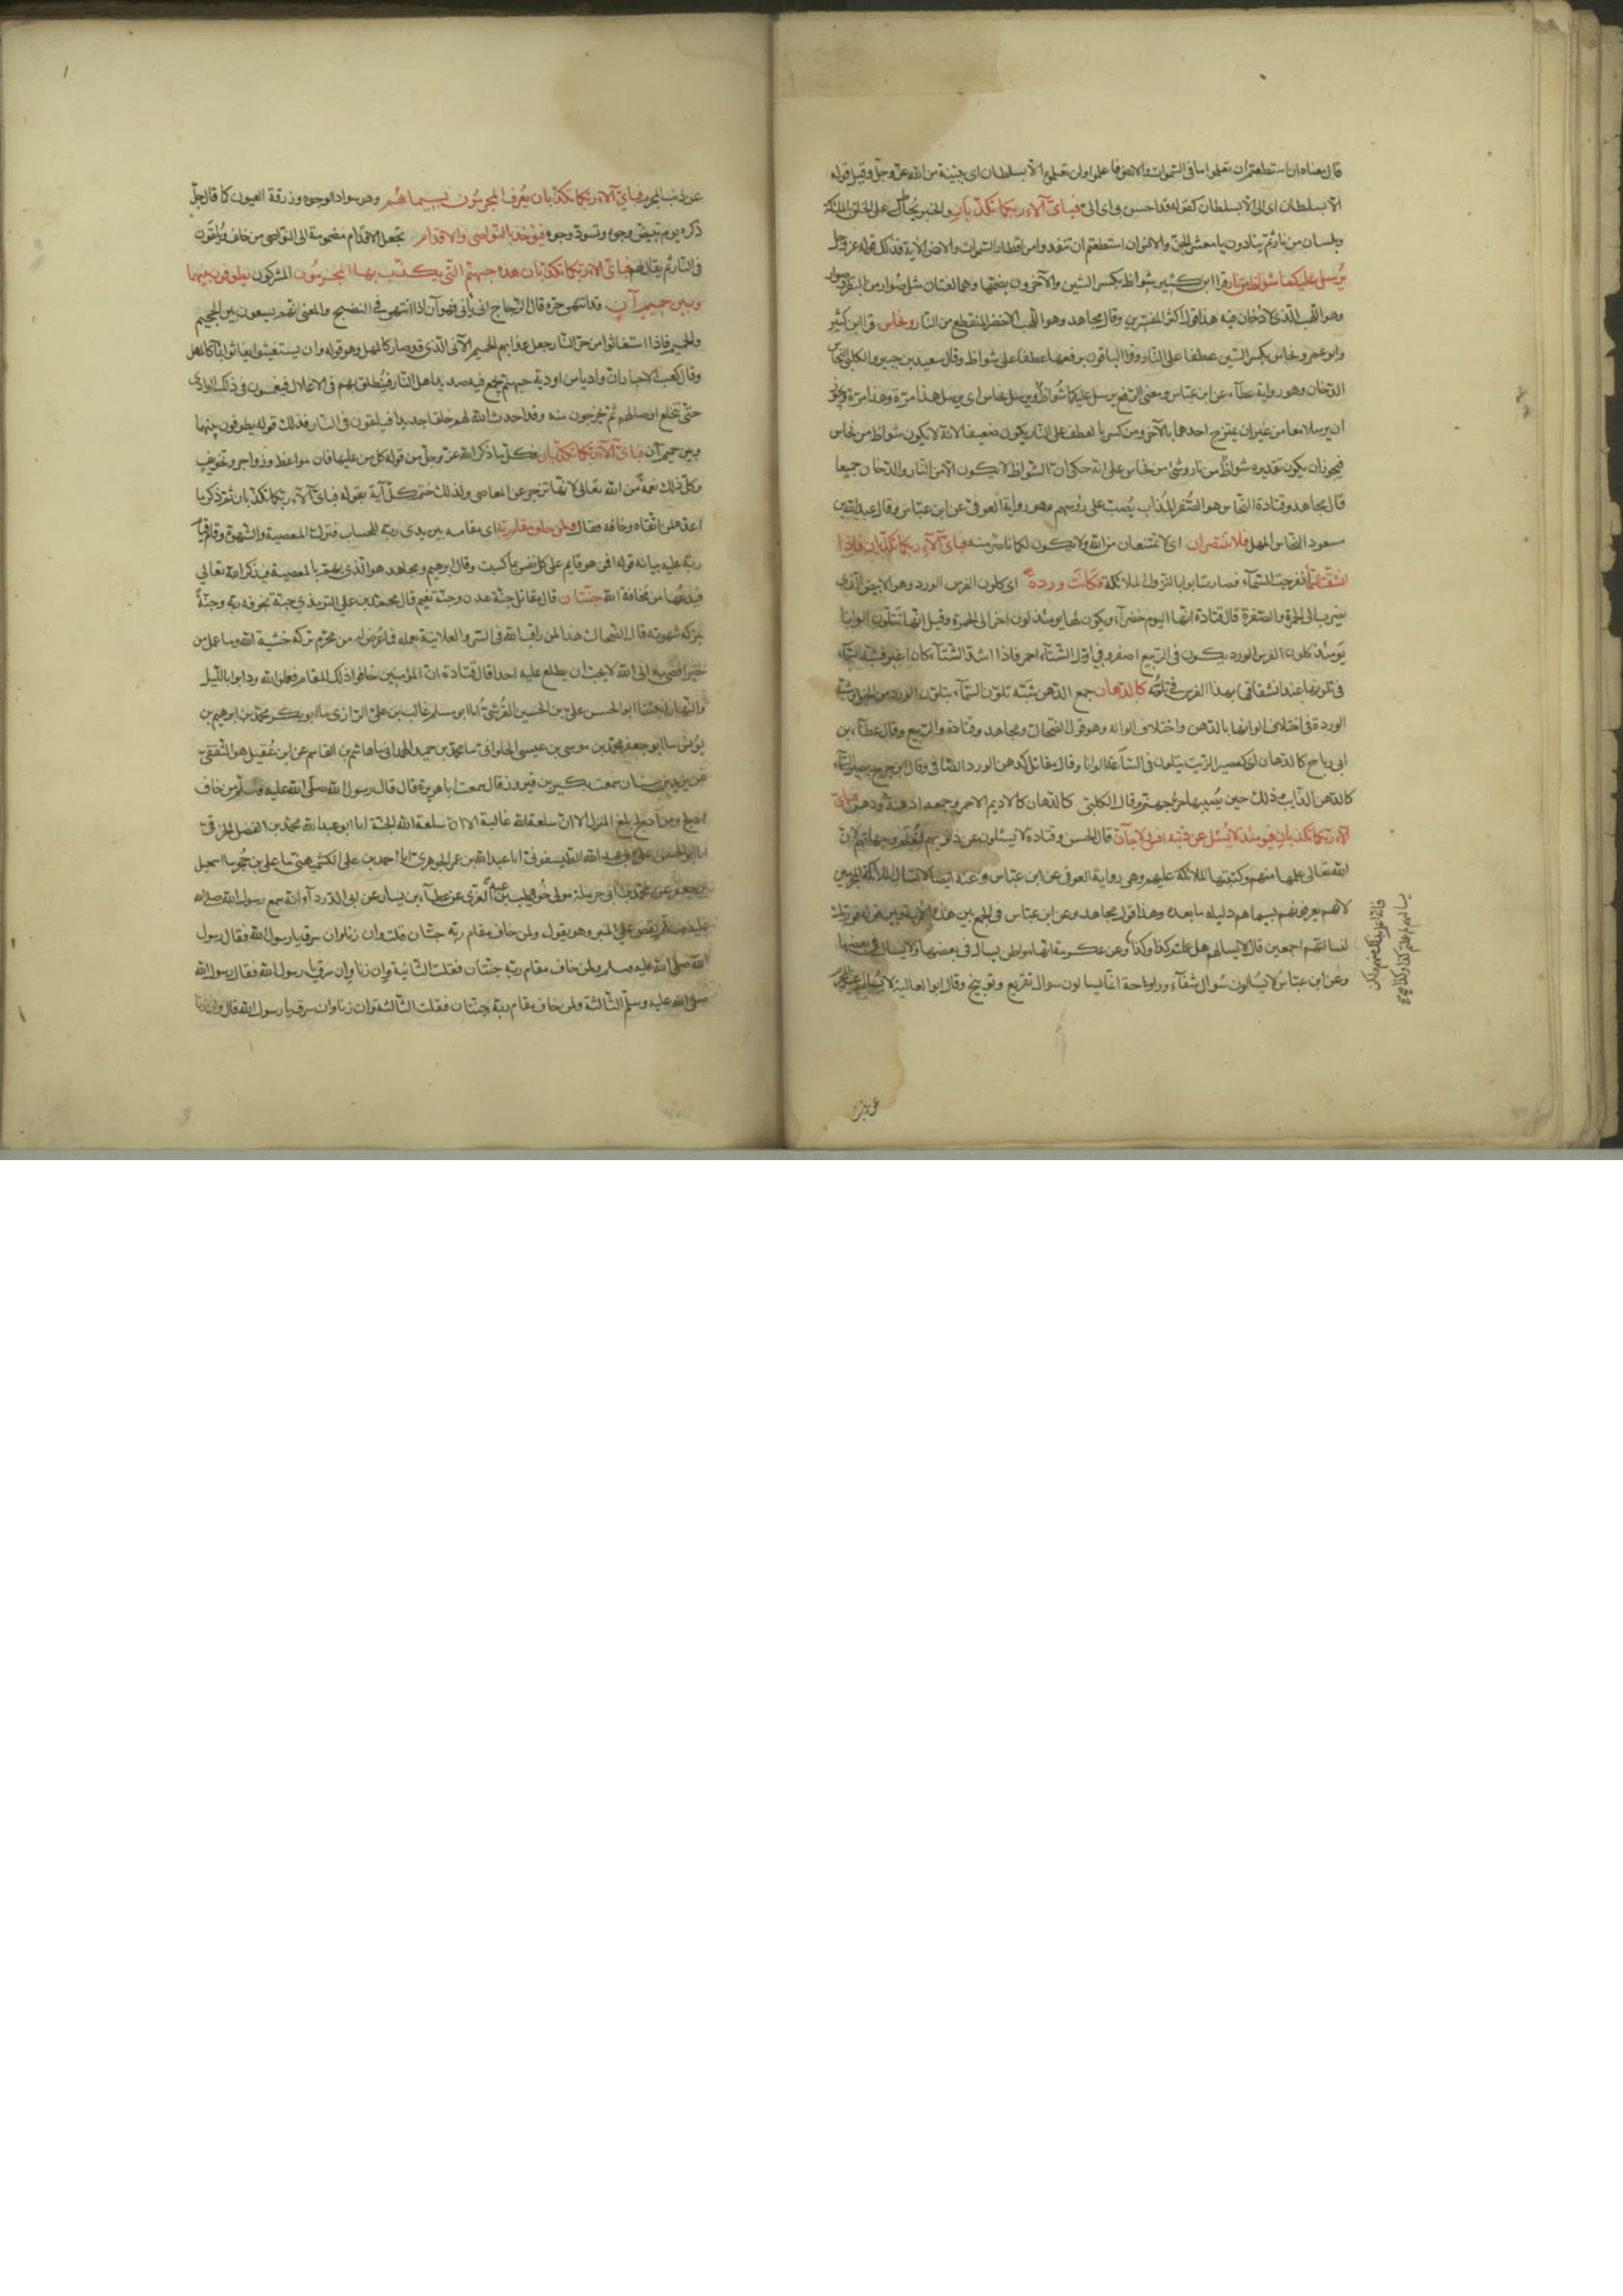 قال معناه ان استطعتم ان تعلموا ما فى السموات والارض فاعلموا ولن تعلموه الا بسلطان اى ببينة من الله عز وجل وقيل قوله
الا بسلطان اى الى الا بسلطان كقوله قد احسن بى اى الى فباىّ آلاء ربكما تكذّبان وفى الخبر يحاط على الخلق بالملائكة
وبلسان من نار ثم ينادون يا معشر الجن والانس ان استطعتم ان تنفذوا من اقطار السموات والارض الاية فذلك قوله عز وجل
يُرسل عليكما شواظ من نار قرا ابن كثير شواظ بكسر الشين والآخرون بضمها وهما لغتان مثل صُوار من البقر وصِوار
وهو اللهب الذى لا دخان فيه هذا قول اكثر المفسّرين وقال مجاهد هو اللهب الاخضر المنقطع من النار ونحاس قرا ابن كثير
وابو عمرو ونحاس بكسر السّين عطفا على النار وقرا الباقون برفعها عطفا على شواظ وقال سعيد بن جبير والكلبى النحاس
الدخان وهو رواية عطآء عن ابن عبّاس ومعنى الرفع يرسل عليكما شواظ ويرسل نحاس اى يرسل هذا مرّة وهذا مرّة ويجوز
ان يرسلا معا من غير ان يمتزج احدهما بالآخر ومن كسر بالعطف على النار يكون ضعيفا لانه لا يكون شواظ من نحاس
فيجوز ان يكون تقديره شواظ من نار وشئ من نحاس على انه حكى ان الشواظ لا يكون الا من النار والدخان جميعا
قال مجاهد وقتادة النحاس هو الصُّفر المُذاب يُصبّ على رؤسهم وهو رواية العوفى عن ابن عباس وقال عبد الله بن
مسعود النحاس المهل فلا تنتصران اى لا تمتنعان من الله ولا يكون لكما ناصر منه فباىّ آلآء ربكما تكذّبان فاذا
انشقت السمآء انفرجت السّمآء فصارت ابوابا لنزول الملائكة فكانت وردة اى كلون الفرس الورد وهو الابيض الذى
يضرب الى الحمرة والصفرة قال قتادة انها اليوم خضرآء ويكون لها يومئذ لون اخر الى الحمرة وقيل انها تتلوّن الوانا
يومئذ كلون الفرس الورد يكون فى الربيع اصفر وفى اوّل الشتآء احمر فاذا اشتدّ الشتآء كان اغبر فشبّه السمآء
فى تلوّنها عند انشقاقها بهذا الفرس فى تلوّنه كالدّهان جمع الدّهن شبّه تلوّن السّمآء بتلوّن الورد من الخيل وشبّه
الوردة فى اختلاف الوانها بالدّهن واختلاف الوانه وهو قول الضحاك ومجاهد وقتادة والربيع وقال عطآء بن
ابى رباح كالدّهان اى كعصير الزّيت يتلوّن فى الساعة الوانا وقال مقاتل كدهن الورد الصافى وقال ابن جريج يصير السّمآء
كالدّهن الذّايب وذلك حين يُصيبها حرّ جهنّم وقال الكلبى كالدّهان كالاديم الاحمر وجمعه ادهنة ودهن فباىّ
آلآء ربكما تكذّبان فيومئذ لا يُسئل عن ذنبه انس ولا جآن قال الحسن وقتادة لا يسئلون عن ذنوبهم لتُعلم من جهتهم لان
الله تعالى علمها منهم وكتبتها الملائكة عليهم وهى رواية العوفى عن ابن عباس وعنه ايضا لا تسأل الملائكة المجرمين
لانهم يعرفونهم بسيماهم دليله ما بعده وهذا قول مجاهد وعن ابن عبّاس فى الجمع بين هذه الاية وبين قوله فوربّك
لنسالنّهم اجمعين قال لا يسالهم هل عملتم كذا وكذا وعن عكرمة انها مواطن يسال فى بعضها ولا يسال فى بعضها
وعن ابن عبّاس لا يُسألون سُوال شفآء وراحة انما يسالون سوال تقريع وتوبيخ وقال ابو العالية لا يُسال غير المجرم
عن ذنب
عن ذنب المجرم فباىّ آلآء ربّكما تكذّبان يُعرف المجرمُون بسيماهُم وهو سواد الوجوه وزرقة العيون كما قال جلّ
ذكره يوم تبيضّ وجوه وتسودّ وجوه فيؤخذ بالنّواصى والاقدام تجعل الاقدام مضمومة الى النواصى من خلف ويُلقَون
فى النّار ثم يقال لهم فباىّ آلآء ربّكما تكذّبان هذه جهنّم الّتى يكذّب بها المجرمُون المشركون يطوفون بينها
وبين حميم آن قد انتهى حرّه قال الزجاج انى يأنى فهو آن اذا انتهى فى النضج والمعنى انّهم يسعون بين الجحيم
والحميم فاذا استغاثوا من حرّ النّار جعل عذابهم الحميم الآنى الّذى قد صار كالمهل وهو قوله وان يستغيثوا يغاثوا بمآء كالمهل
وقال كعب الاحبار ان واد يا من اودية جهنّم يجمع فيه صديد اهل النّار فينُطلق بهم فى الاغلال فيغمسون فى ذلك الوادى
حتّى تنخلع اوصالهم ثم يخرجون منه وقد احدث الله لهم خلقا جديدا فيلقون فى النّار فذلك قوله يطوفون بينها
وبين حميم آن فباىّ آلآء ربّكما تكذّبان فكل ما ذكر الله عزّ وجلّ من قوله كل من عليها فان مواعظ وزواجر وتخويف
وكلّ ذلك نعمة من الله تعالى لانها تزجر عن المعاصى ولذلك ختم كلّ آية بقوله فباىّ آلآء ربّكما تكذّبان ثم ذكر ما
اعدّ لمن اتّقاه وخافه فقال ولمن خاف مقام ربّه اى مقامه بين يدى ربّه للحساب فترك المعصية والشهوة وقيل قيام
ربّه عليه بيانه قوله افمن هو قايم على كل نفس بما كسبت وقال ابرهيم ومجاهد هو الّذى يهمّ بالمعصية فيذكر الله تعالى
فيدعُها من مخافة الله جنّتان قال مقاتل جنّة عدن وجنّة نعيم قال محمد بن على الترمذي جنّة بخوفه ربّه وجنّة
بتركه شهوته قال الضحاك هذا لمن راقب الله فى السرّ والعلانية بعلمه فما عُرض له من محرّم تركه خشية الله وما عمل من
خير افضى به الى الله لا يحبّ ان يطلع عليه احد قال قتادة انّ المؤمنين خافوا ذلك المقام فعملوا لله ودابوا بالليل
والنّهار اخبرنا ابو الحسن علىّ بن الحسين القُرشىّ انا ابو مسلم غالب بن على الرّازى نا ابو بكر محمد بن ابرهيم بن
يونس نا ابو جعفر محمّد بن موسى بن عيسى الحلوانى نا محمد بن حميد الهمدانى نا هاشم بن القاسم عن ابن عُقيل هو الثّقفىّ
عن يزيد بن سنان سمعت بكير بن فيروز قال سمعت ابا هريرة قال قال رسول الله صلّى الله عليه وسلّم من خاف
ادلج ومن ادلج بلغ المنزل الا ان سلعة الله غالية الا ان سلعة الله الجنّة انا ابو عبد الله محمّد بن الفضل الخرقى
انا ابو الحسن علىّ بن عبد الله الطيسفونى انا عبد الله بن عمر الجوهرى انا احمد بن على الكشميهنى نا على بن حُجر نا اسمعيل
بن جعفر عن محمّد بن ابى حرملة مولى حُويطب بن عبد العزّى عن عطآء بن يسار عن ابى الدّردآء انه سمع رسول الله صلى الله
عليه وسلّم يقصّ على المنبر وهو يقول ولمن خاف مقام ربّه جنّتان قلت وان زنا وان سرق يا رسول الله فقال رسول
الله صلّى الله عليه وسلم ولمن خاف مقام ربّه جنّتان فقلت الثّانية وان زنا وان سرق يا رسول الله فقال رسول الله
صلّى الله عليه وسلّم الثّالثة ولمن خاف مقام ربّه جنّتان فقلت الثّالثة وان زنا وان سرق يا رسول الله قال وان